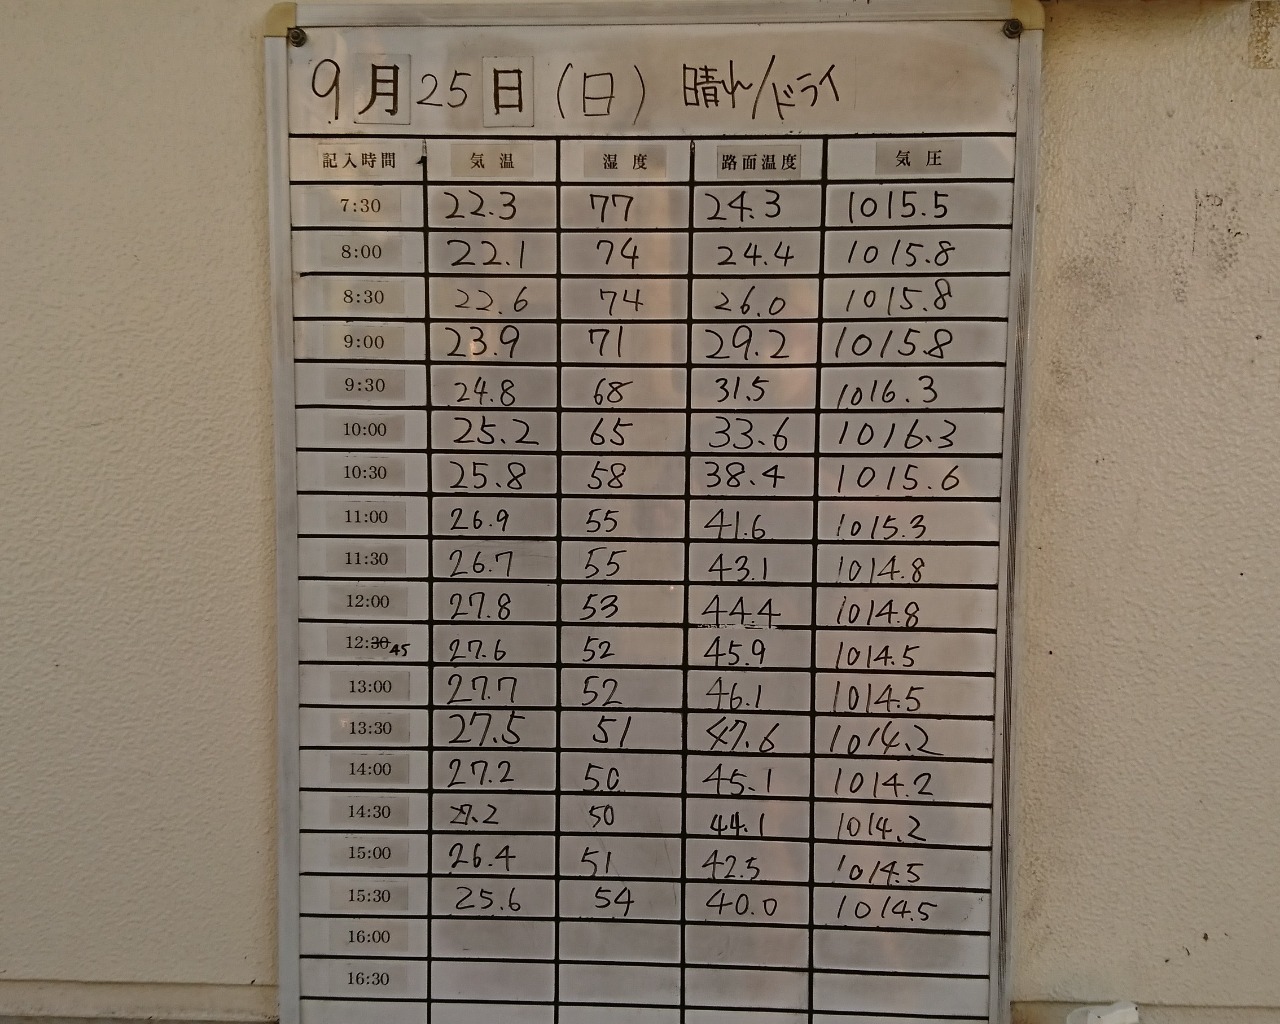 9月25日(日) 晴れ/ドライ
記入時間 気温 湿度 路面温度 気圧
7:30 22.3 77 24.3 1015.5
8:00 22.1 74 24.4 1015.8
8:30 22.6 74 26.0 1015.8
9:00 23.9 71 29.2 1015.8
9:30 24.8 68 31.5 1016.3
10:00 25.2 65 33.6 1016.3
10:30 25.8 58 38.4 1015.6
11:00 26.9 55 41.6 1015.3
11:30 26.7 55 43.1 1014.8
12:00 27.8 53 44.4 1014.8
12:30 45 27.6 52 45.9 1014.5
13:00 27.7 52 46.1 1014.5
13:30 27.5 51 47.6 1014.2
14:00 27.2 50 45.1 1014.2
14:30 27.2 50 44.1 1014.2
15:00 26.4 51 42.5 1014.5
15:30 25.6 54 40.0 1014.5
16:00
16:30